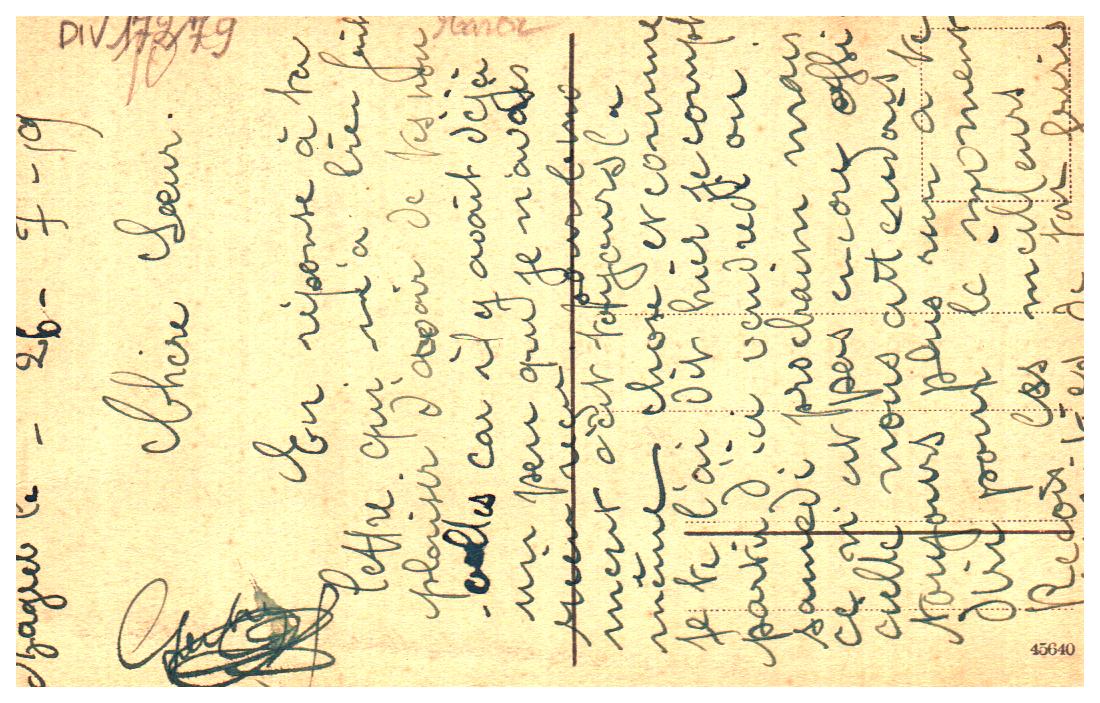 DIV 17279
le - 26 - 7 - 19
Chère Sœur.
En réponse à ta
lettre qui m'a bien fait
plaisir d'avoir de tes nou
-velles car il y avait déjà
un peu que je n'avais
rien reçu
ment c'est toujours la
même chose et comme
je te l'ai dit hier je compt
partir d'ici vendredi ou
samedi prochain mais
ce ni est pas encore offi
cielle nous attendons
toujours plus rien a te
dir pour le moment
Reçois les meilleurs
de ton
45640